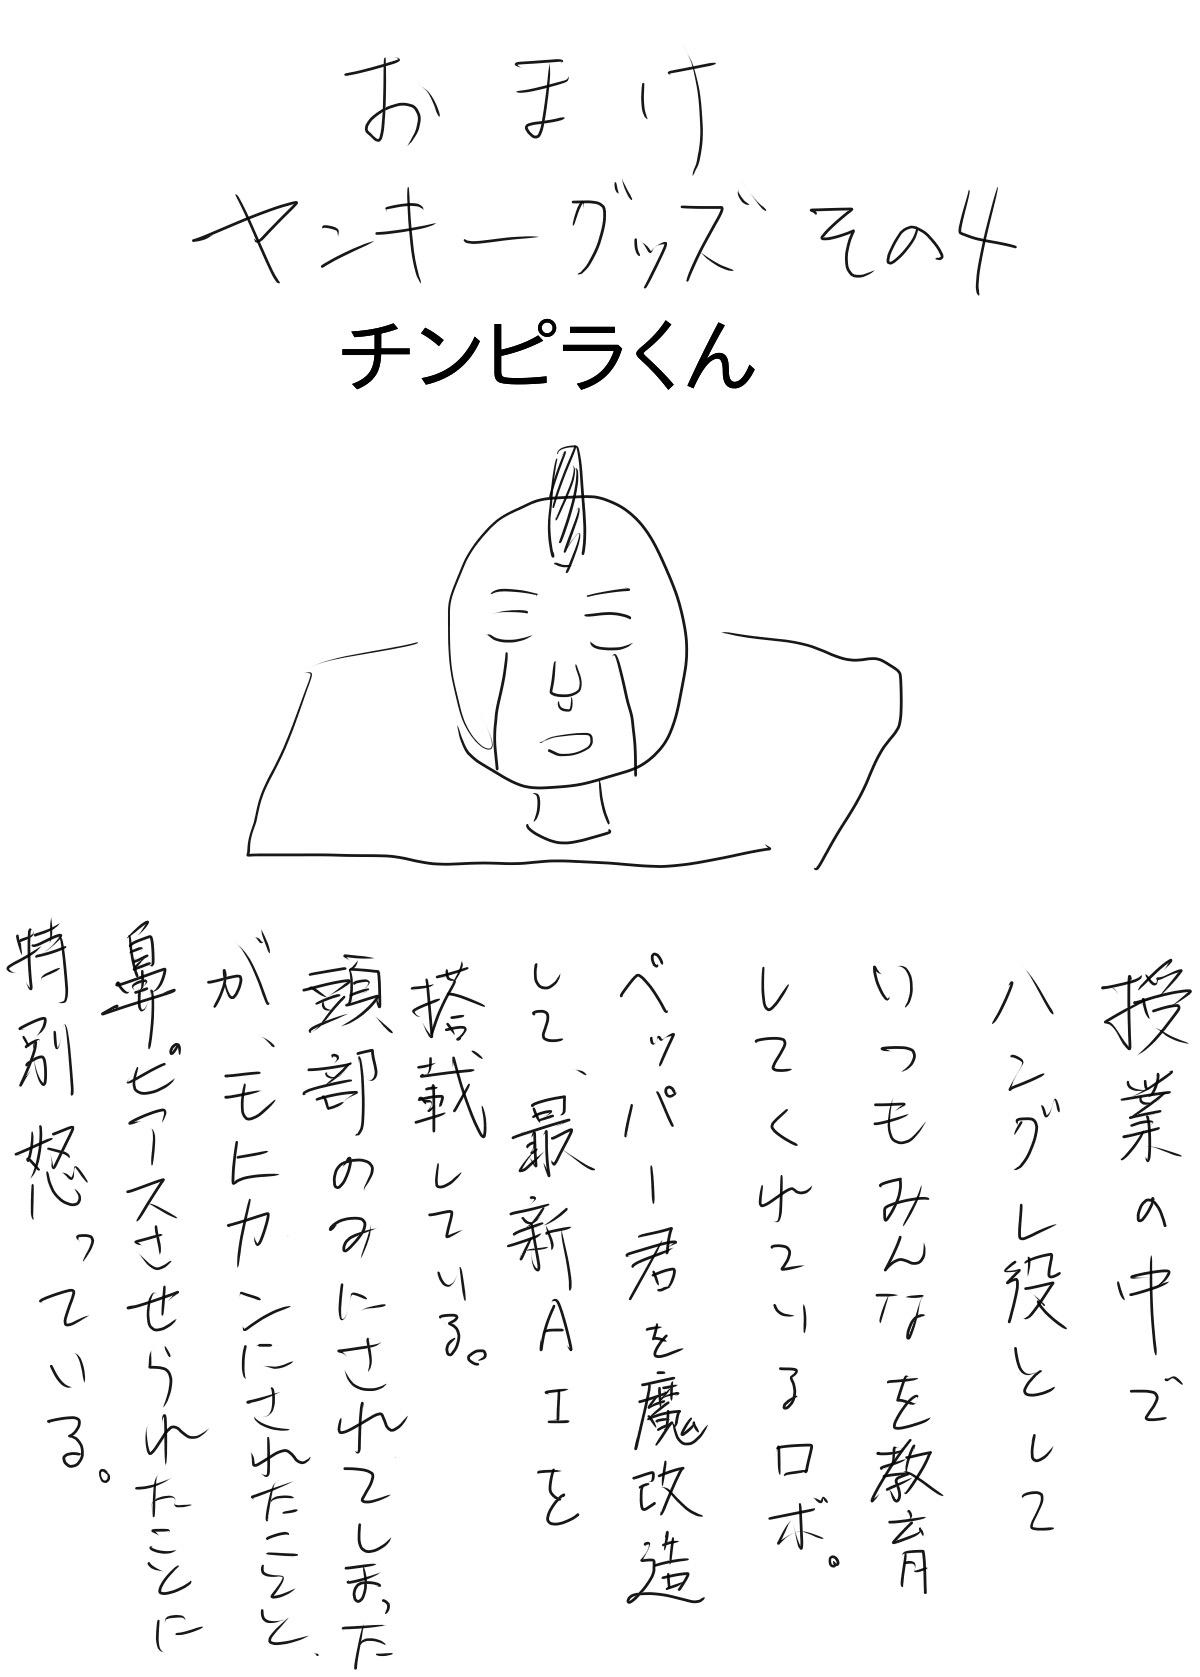 おまけ
ヤンキーグッズ その4
チンピラくん
授業の中で
ハングレ役として
いつもみんなを教育
してくれているロボ。
ペッパー君を魔改造
して、最新AIを
搭載している。
頭部のみにされてしまった
が、モヒカンにされたことと、
鼻ピアスさせられたことに
特別怒っている。